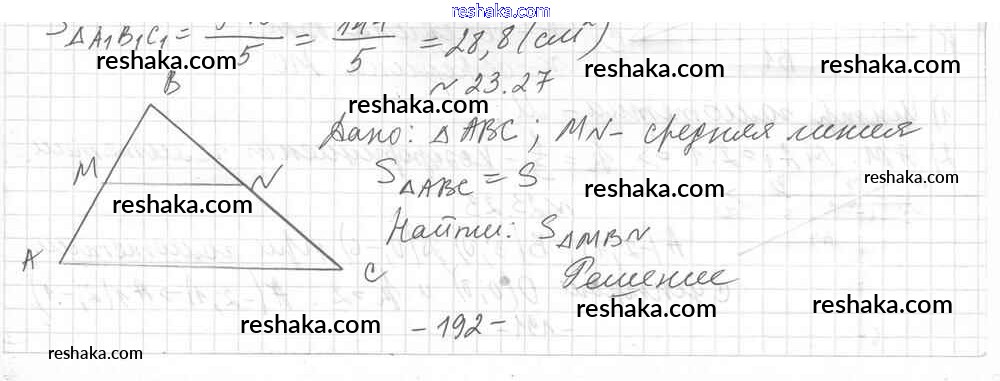 reshaka.com
S△A₁B₁C₁ = /5 = 144/5 = 28,8 (см²)
reshaka.com reshaka.com reshaka.com
№ 23.27
reshaka.com reshaka.com reshaka.com
B
Дано: △ ABC ; MN - средняя линия
M N
S△ABC = S
reshaka.com reshaka.com reshaka.com
Найти: S△MBN
A C
Решение
reshaka.com reshaka.com reshaka.com
- 192 -
reshaka.com